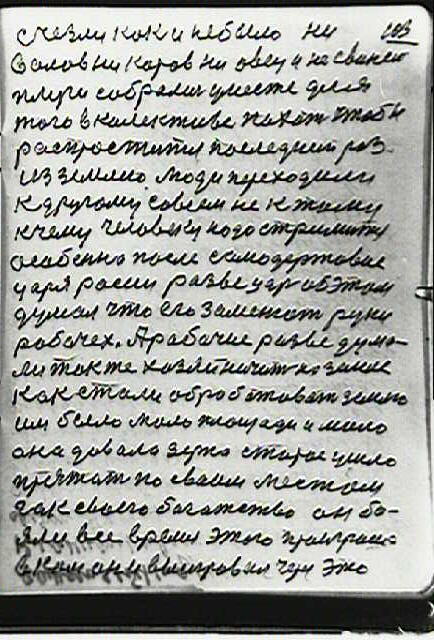 счезли как и небыло ни 103
Валов ни каров ни овец и не свиней
плуги собрали уместе для
того в калективе пахат чтобы
распроститися последний раз
из землею люди переходили
к другому совсем не к тому
к чему человеку надо стримится
особенно после самодержавие
царя расии разве цар об этом
думал что его заменят руки
рабочех. А рабочие разве дума-
ли так же хазяйничат на земле
Как стали обробатоват землю
им было мало площади и мало
она довала зерна старое ушло
по сваим местам
как своего багатства он бо-
яли все время этого
в ком они чем это